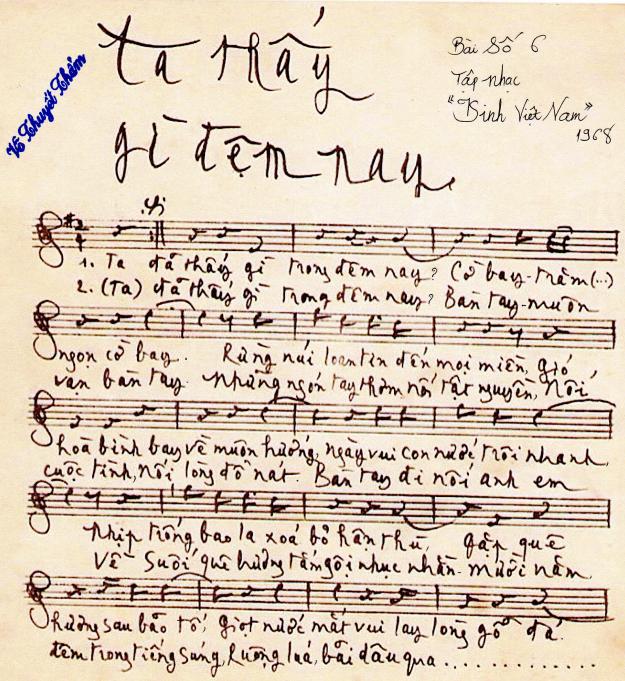 Ta thấy
gì đêm nay.
Bài Số 6
Tập nhạc
"Kinh Việt Nam"
1968
Võ Thuyết Thẩm
2
4
1. Ta đã thấy gì trong đêm nay? Cờ bay - trăm (..)
2. (Ta) đã thấy gì trong đêm nay? Bàn tay - muôn
ngọn cờ bay. Rừng núi loan tin đến mọi miền, gió
vạn bàn tay. Những ngón tay thơm nối tật nguyền, Nối
hoà bình bay về muôn hướng, ngày vui con nước trôi nhanh,
cuộc tình, nối lòng đổ nát. Bàn tay đi nối anh em
nhịp trống bao la xoá bỏ hận thù, gặp quê
Về suối quê hương tắm gội nhục nhằn. mười năm,
hương sau bão tố, giọt nước mắt vui lay lòng gỗ đá.
đêm trong tiếng súng, Ruộng lúa, bãi dâu qua . . . . . . . . . . . . .